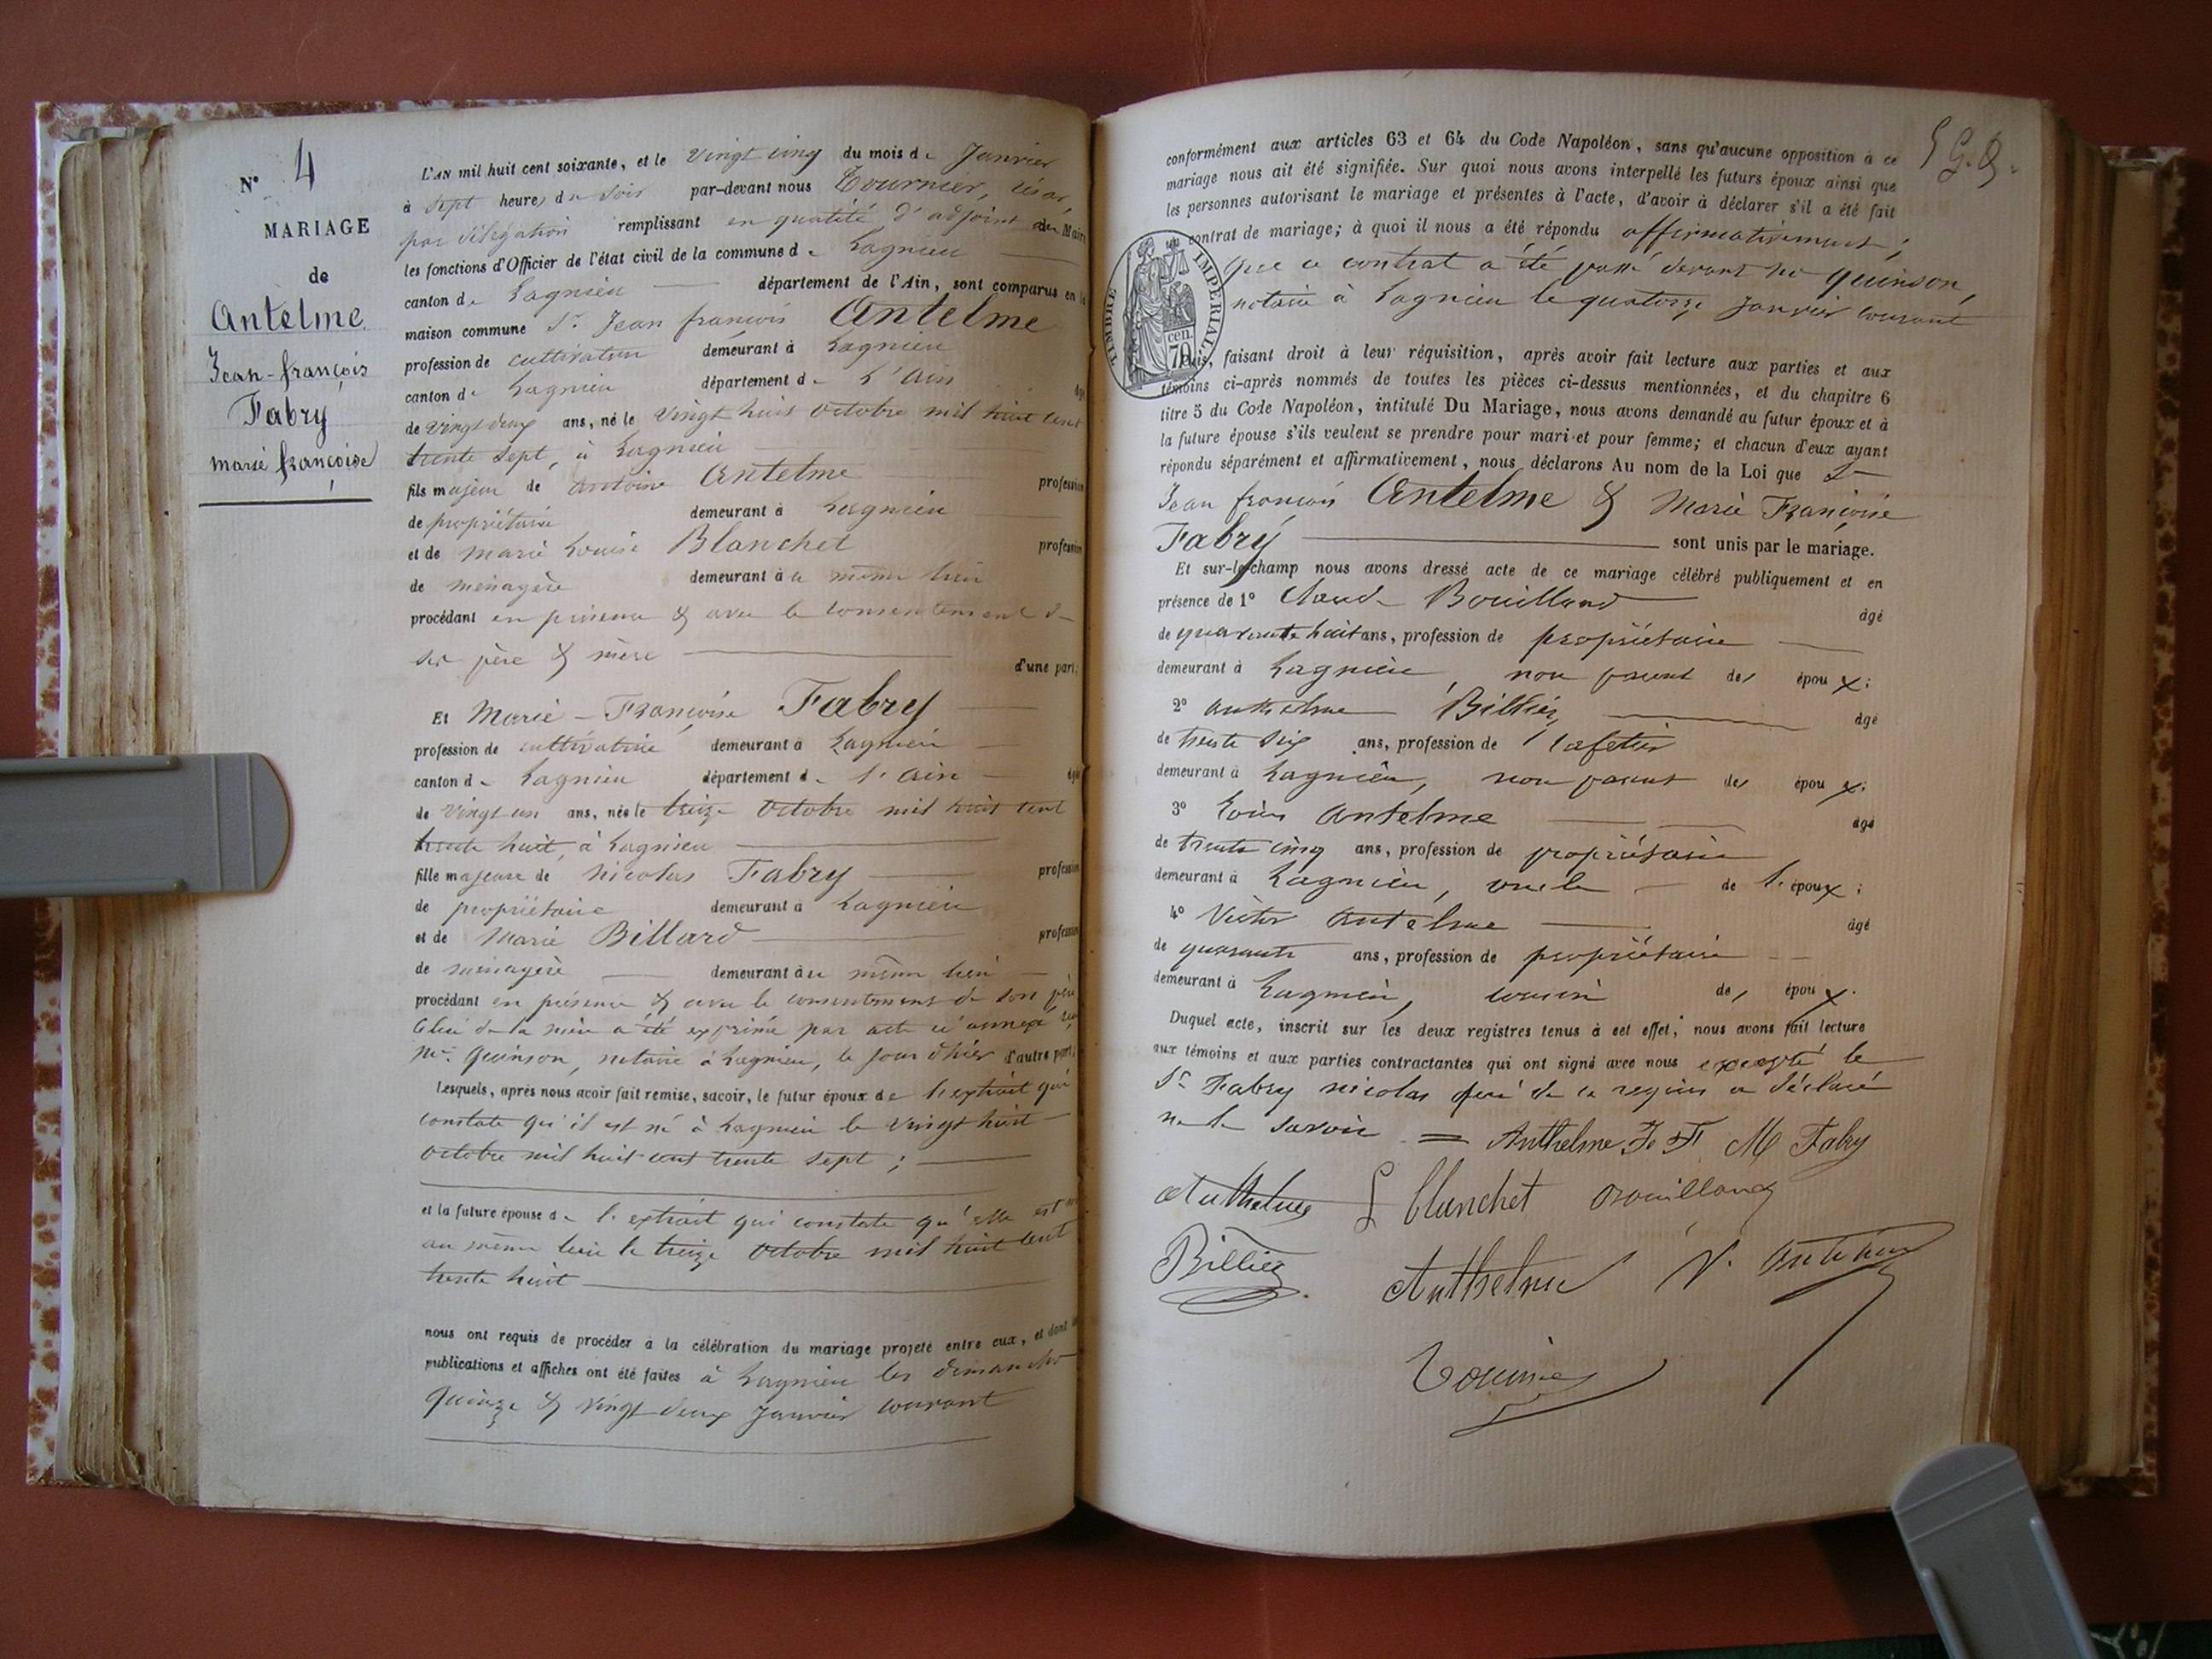 N° 4
MARIAGE
de
Antelme
Jean-françois
Fabry
marie françoise
L'AN mil huit cent soixante, et le vingt cinq du mois de Janvier
à sept heures du soir par-devant nous Tournier, César,
par délégation remplissant en qualité d'adjoint au Maire
les fonctions d'Officier de l'état civil de la commune de Lagnieu
canton de Lagnieu département de l'Ain, sont comparus en la
maison commune Sr. Jean françois Antelme
profession de cultivateur demeurant à Lagnieu
canton de Lagnieu département de L'Ain âgé
de vingt deux ans, né le vingt huit octobre mil huit cent
trente sept, à Lagnieu
fils majeur de Antoine Antelme profession
de propriétaire demeurant à Lagnieu
et de marie Louise Blanchet profession
de ménagère demeurant à ce même lieu
procédant en présence & avec le consentement de
ses père & mère d'une part;
Et Marie-Françoise Fabry
profession de cultivatrice demeurant à Lagnieu
canton de Lagnieu département de l'Ain âgée
de vingt un ans, née le treize octobre mil huit cent
trente huit, à Lagnieu
fille majeure de Nicolas Fabry profession
de propriétaire demeurant à Lagnieu
et de Marie Billard profession
de ménagère demeurant à ce même lieu
procédant en présence & avec le consentement de son père
Celui de la mère a été exprimé par acte ci annexé
Me. Quinson, notaire à Lagnieu, le jour d'hier d'autre part;
Lesquels, après nous avoir fait remise, savoir, le futur époux de l'extrait qui
constate qu'il est né à Lagnieu le vingt huit
octobre mil huit cent trente sept;
et la future épouse de l'extrait qui constate qu'elle est née
au même lieu le treize octobre mil huit cent
trente huit
nous ont requis de procéder à la célébration du mariage projeté entre eux, et dont les
publications et affiches ont été faites à Lagnieu les dimanches
quinze & vingt deux janvier courant
conformément aux articles 63 et 64 du Code Napoléon, sans qu'aucune opposition à ce
mariage nous ait été signifiée. Sur quoi nous avons interpellé les futurs époux ainsi que
les personnes autorisant le mariage et présentes à l'acte, d'avoir à déclarer s'il a été fait
un contrat de mariage; à quoi il nous a été répondu affirmativement;
que ce contrat a été passé devant Me Quinson,
notaire à Lagnieu le quatorze janvier courant
TIMBRE IMPERIAL
70 cen.
Puis, faisant droit à leur réquisition, après avoir fait lecture aux parties et aux
témoins ci-après nommés de toutes les pièces ci-dessus mentionnées, et du chapitre 6
titre 5 du Code Napoléon, intitulé Du Mariage, nous avons demandé au futur époux et à
la future épouse s'ils veulent se prendre pour mari et pour femme; et chacun d'eux ayant
répondu séparément et affirmativement, nous déclarons Au nom de la Loi que Sr
Jean françois Antelme & Marie Françoise
Fabry sont unis par le mariage.
Et sur-le-champ nous avons dressé acte de ce mariage célébré publiquement et en
présence de 1° Claude Bouilland âgé
de quarante huit ans, profession de propriétaire
demeurant à Lagnieu, non parent des époux;
2° Anthelme Billiez âgé
de trente six ans, profession de cafetier
demeurant à Lagnieu, non parent des époux;
3° Louis Antelme âgé
de trente cinq ans, profession de propriétaire
demeurant à Lagnieu, oncle de l'époux;
4° Victor Antelme âgé
de quarante ans, profession de propriétaire
demeurant à Lagnieu, cousin des époux.
Duquel acte, inscrit sur les deux registres tenus à cet effet, nous avons fait lecture
aux témoins et aux parties contractantes qui ont signé avec nous excepté le
Sr Fabry nicolas père de ce requis a déclaré
ne le savoir = Anthelme J F M Fabry
Anthelme L blanchet Bouilland
Billiez Anthelme V. Antelme
Tournier